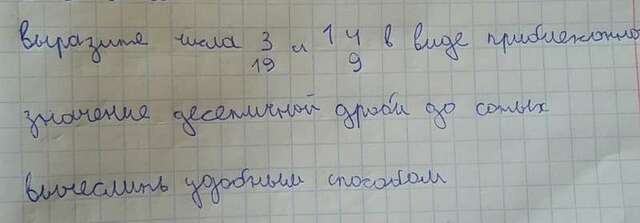 выразите числа 3 и 1 4 в виде приближённо
19 9
значение десетичной дроби до сотых
вычеслить удобным способом